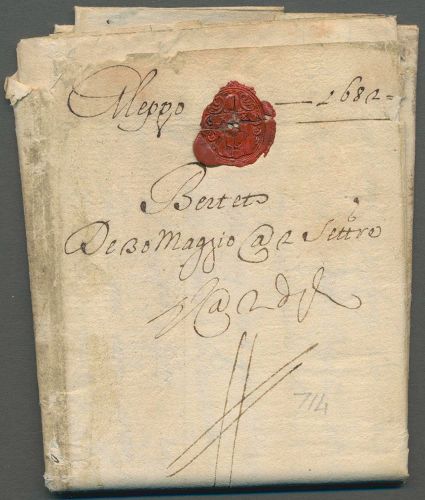 Aleppo — 1682 =
Bertet
De 30 Maggio @ 2 Settre
714